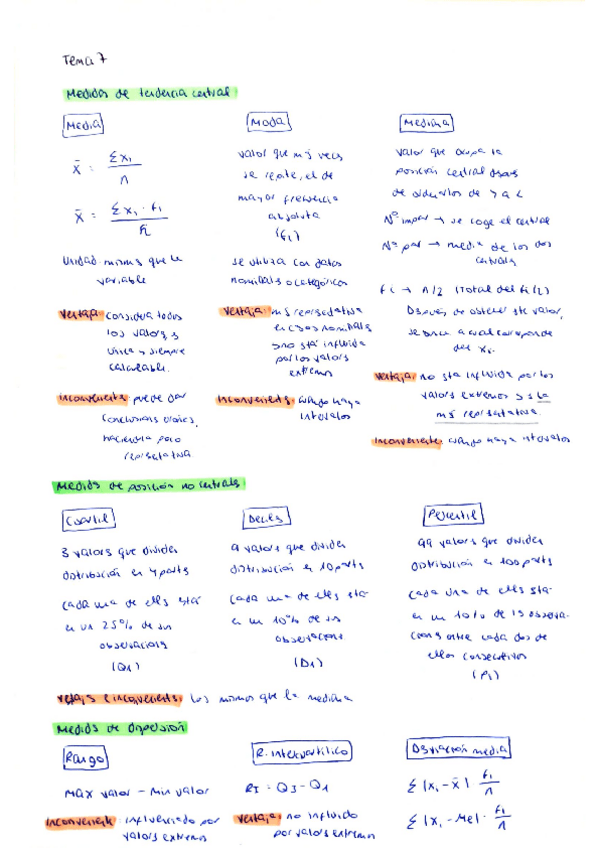 Tema 7
Medidas de tendencia central
Media
x̄ = Σxi / n
x̄ = Σxi · fi / n
Unidad: misma que la
variable
Ventaja: considera todos
los valores y
única y siempre
calculable.
Inconveniente: puede dar
conclusiones
representativa
Moda
valor que más veces
se repite, el de
mayor frecuencia
absoluta
(fi)
se utiliza con datos
nominales o categóricos
Ventaja: más representativa
en casos nominales
y no está influida
por los valores
extremos
Inconveniente: cuando haya
intervalos
Mediana
valor que ocupa la
posición central
de ordenarlos de > a <
Nº impar → se coge el central
Nº par → media de los dos
centrales
fi → n/2 (Total del fi/2)
Después de obtener este valor,
se busca a cual corresponde
del xi.
Ventaja: no sta influida por los
valores extremos y s la
más representativa.
Inconveniente: cuando haya intervalos
Medidas de posición no centrales
Cuartil
3 valores que dividen
distribución en 4 parts
cada una de ellas está
en un 25% de las
observaciones
(Q1)
Deciles
9 valores que dividen
distribución en 10 parts
cada una de ellas stá
en un 10% de las
observaciones
(D1)
Percentil
99 valores que dividen
distribución en 100 parts
cada una de ellas stá
en un 1% de las observa-
ciones entre cada dos de
ellos consecutivos
(P1)
Ventajas e inconvenients: los mismos que la mediana
Medidas de dispersión
Rango
Max valor - Min valor
Inconveniente: influenciado por
valores extremos
R. Intercuartílico
RI = Q3 - Q1
Ventaja: no influido
por valores extremos
Desviación media
Σ|xi - x̄| · fi / n
Σ|xi - Me| · fi / n